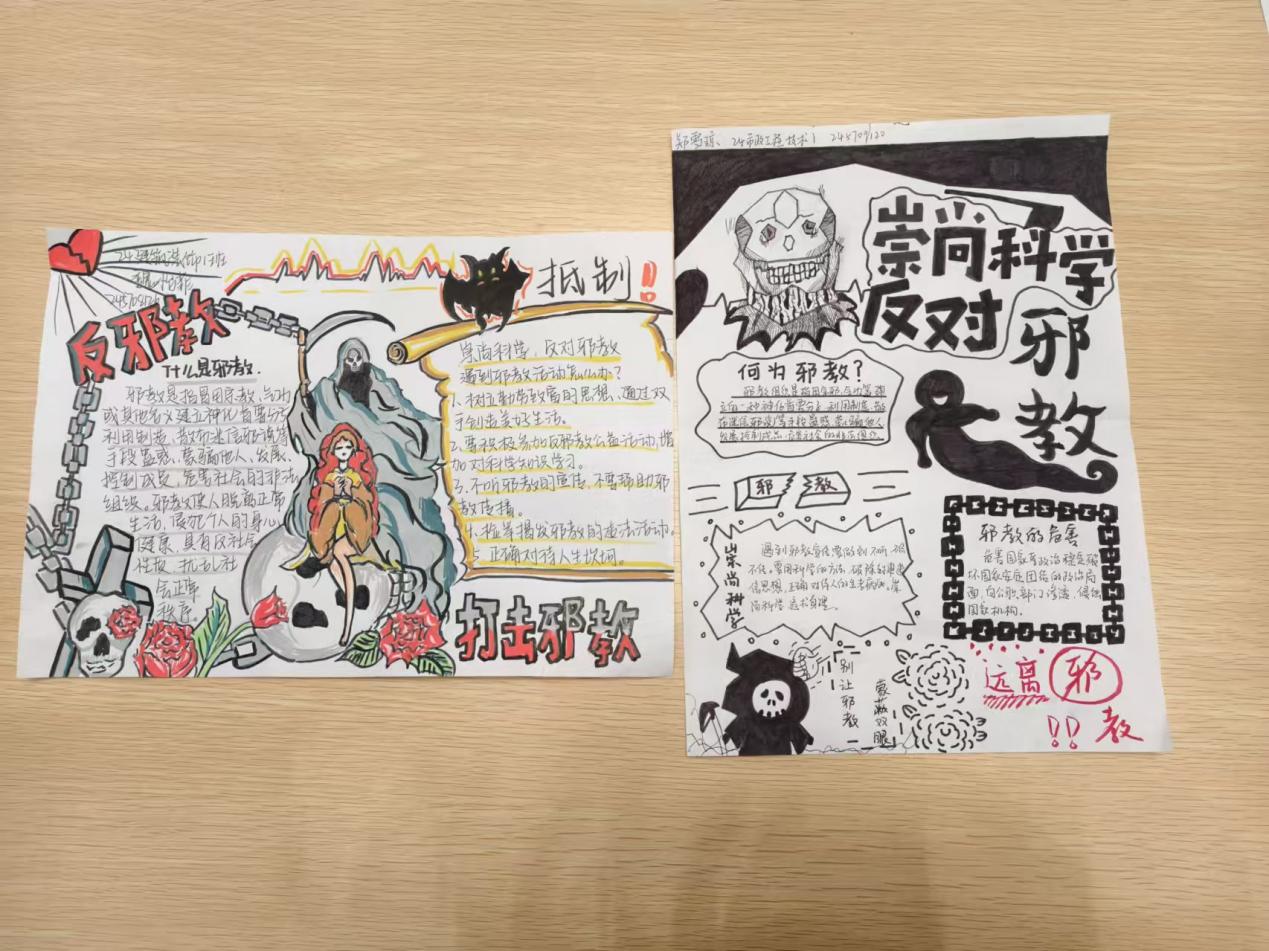 反邪教
什么是邪教.
邪教是指冒用宗教、气功
或其他名义建立神化首要分子
利用制造、散布迷信邪说等
手段蛊惑、蒙骗他人,发展、
控制成员,危害社会的非法
组织。邪教使人脱离正常
生活,
健康,具有反社会
扰乱社
会正常
秩序.
抵制!!
崇尚科学,反对邪教
遇到邪教活动怎么办?
1、树立勤劳致富的思想、通过双
手创造美好生活。
2、要积极参加反邪教公益活动,增
加对科学知识学习。
3、不听邪教的宣传、不要帮助邪
教传播。
4、检举揭发邪教的违法活动。
5、正确对待人生坎坷。
打击邪教
24市政工程技术1 245709120
崇尚科学
反对
邪教
何为邪教?
邪教组织是指冒用宗教、气功等建
邪 教
崇尚科学
遇到邪教宣传要做到不听、不
不传。要用科学的方法,破除封建迷
信思想,正确对待人的生老病死。崇
尚科学
邪教的危害
危害国家政治稳定,破
坏国家安定团结的政治局
面,向公职部门渗透,侵蚀
国家机构。
别让邪教
蒙蔽双眼
远离邪
教!!